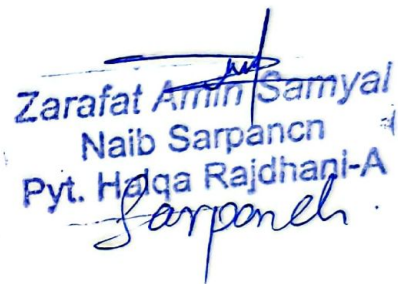 Zarafat Amin Samyal
Naib Sarpancn
Pyt. Halqa Rajdhani-A
Sarpanch.